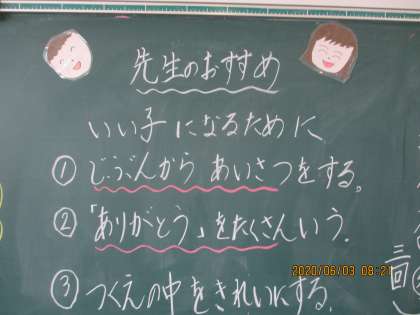 先生のおすすめ
いい子になるために
①じぶんから あいさつをする。
②「ありがとう」をたくさんいう.
③つくえの中をきれいにする.
三回
2020/06/03 08:21